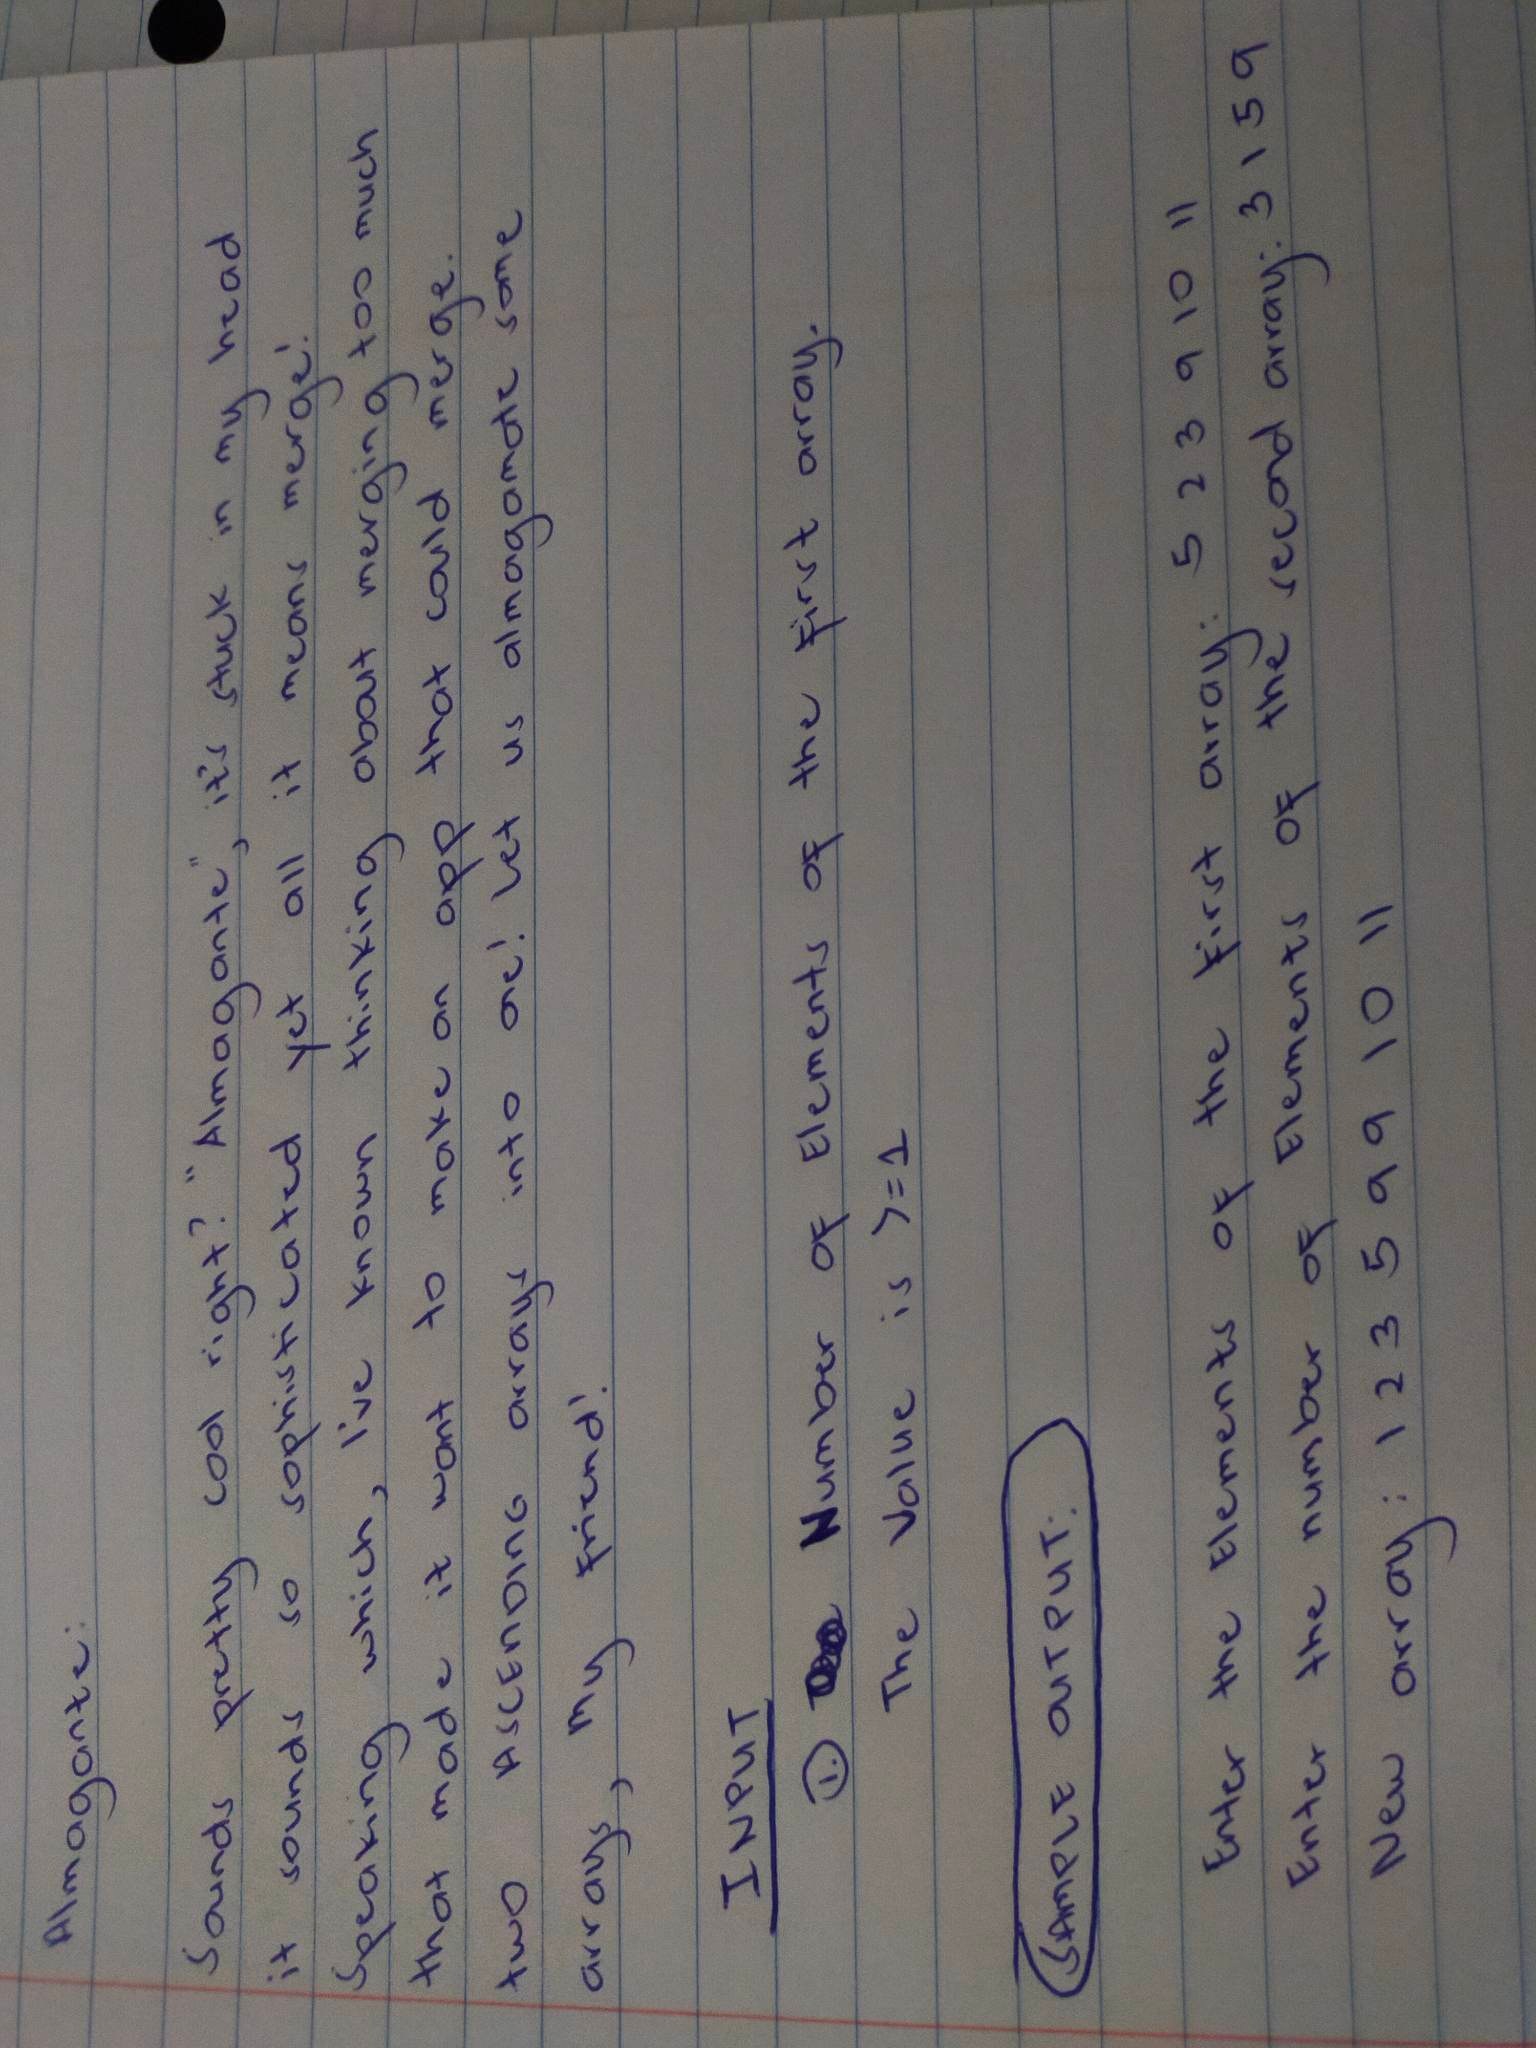 Almagante:
Sounds pretty cool right? "Almagante", it's stuck in my head
it sounds so sophisticated yet all it means merge!
Speaking which, I've known thinking about merging too much
that made it want to make an app that could merge.
two ASCENDING arrays into one! Let us almagamate some
arrays, my friend!
INPUT
1. Number of Elements of the first array.
The Value is >=1
SAMPLE OUTPUT:
Enter the Elements of the first array: 5 2 3 9 10 11
Enter the number of Elements of the second array: 3 1 5 9
New array: 1 2 3 5 9 9 10 11